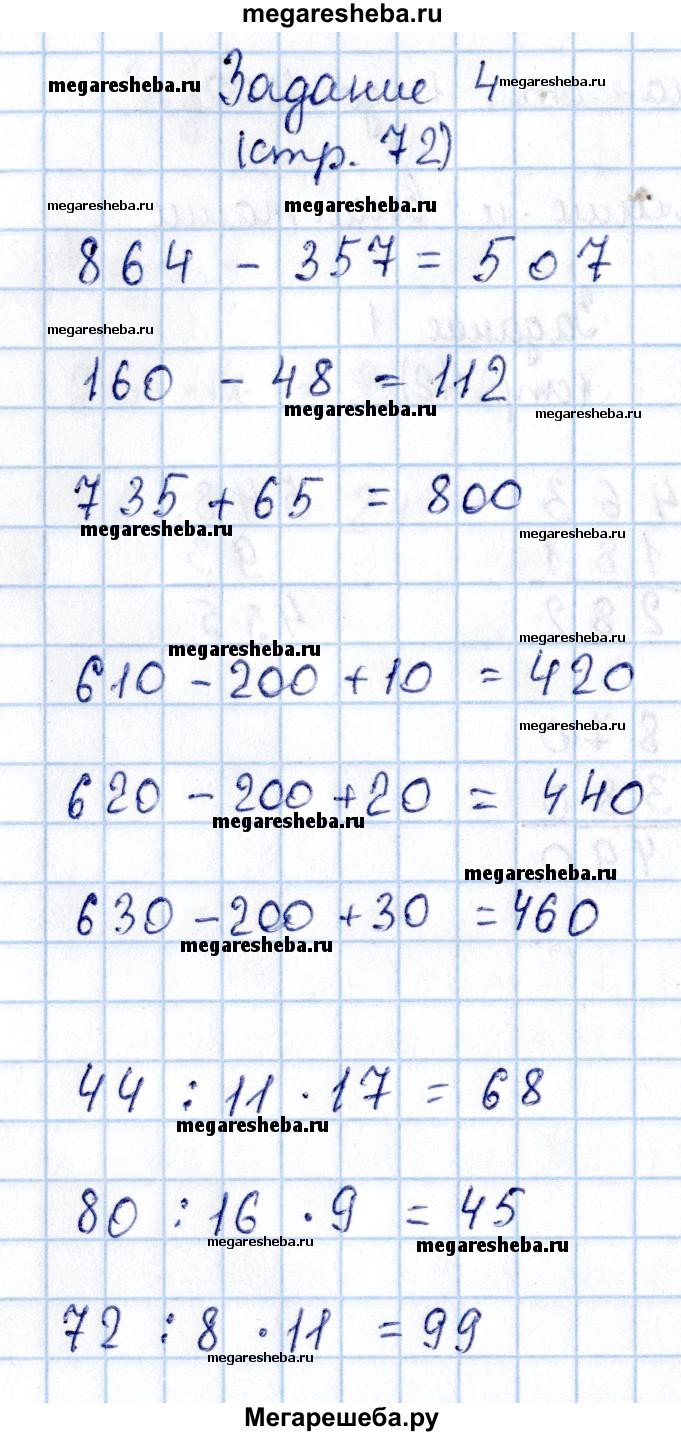 megaresheba.ru
megaresheba.ru Задание 4 megaresheba.ru
(стр. 72)
megaresheba.ru megaresheba.ru
864 - 357 = 507
megaresheba.ru
160 - 48 = 112
megaresheba.ru megaresheba.ru
735 + 65 = 800
megaresheba.ru
megaresheba.ru
megaresheba.ru
megaresheba.ru
610 - 200 + 10 = 420
megaresheba.ru
620 - 200 + 20 = 440
megaresheba.ru
megaresheba.ru
630 - 200 + 30 = 460
megaresheba.ru
44 : 11 · 17 = 68
megaresheba.ru
80 : 16 · 9 = 45
megaresheba.ru megaresheba.ru
72 : 8 · 11 = 99
megaresheba.ru
Мегарешеба.ру